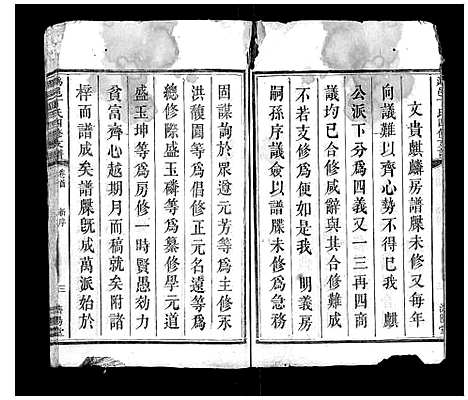 文貴麒麟房譜牒未修又每年
向議難以齊心勢不得已我 麒
公派下合修爲四義又一三再四商
議均已合修咸辭與其合修難成
不若支修爲便如是我 明義房
嗣孫序議僉以譜牒未修爲急務
固謀詢於眾遵元芳等爲主修永
洪馥園等爲倡修正元名遠等爲
總修際盛玉磷等爲纂修學元道
盛玉坤等爲房修一時賢愚効力
貧富齊心越期月而稿就矣附諸
梓而譜成矣譜牒旣成萬派始於
氏四修支譜
卷首
新序
三